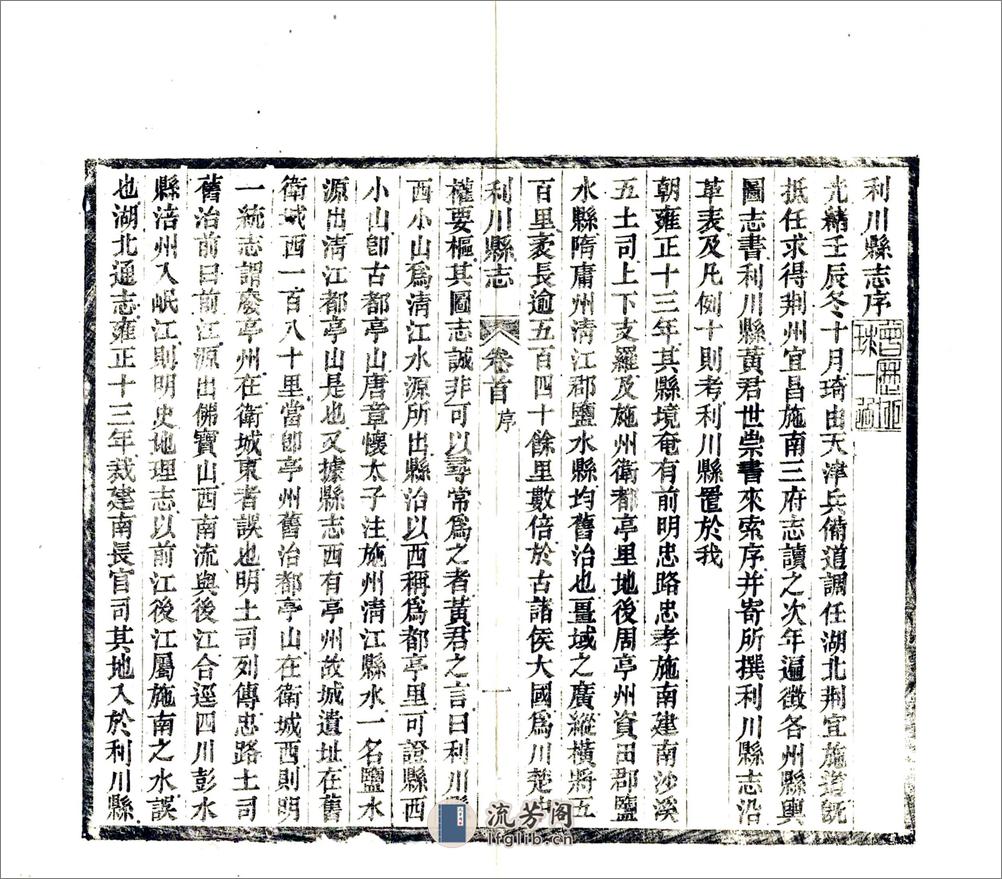 利川縣志序
光緒壬辰冬十月琦由天津兵備道調任湖北荆宜施道既
抵任求得荆州宜昌施南三府志讀之次年遍徵各州縣輿
圖志書利川縣黃君世崇書來索序并寄所撰利川縣志沿
革表及凡例十則考利川縣置於我
朝雍正十三年其縣境奄有前明忠路忠孝施南建南沙溪
五土司上下支羅及施州衛都亭里地後周亭州資田郡鹽
水縣隋庸州清江郡鹽水縣均舊治也畺域之廣縱橫將五
百里袤長逾五百四十餘里數倍於古諸侯大國爲川楚
利川縣志
卷首
序
一
權要樞其圖志誠非可以尋常爲之者黃君之言曰利川縣
西小山爲清江水源所出縣治以西稱爲都亭里可證縣西
小山卽古都亭山唐章懷太子注施州清江縣水一名鹽水
源出清江都亭山是也又據縣志西有亭州故城遺址在舊
衛城西一百八十里當卽亭州舊治都亭山在衛城西則明
一統志謂廢亭州在衛城東者誤也明土司列傳忠路土司
舊治前曰前江源出佛寶山西南流與後江合逕四川彭水
縣涪州入岷江則明史地理志以前江後江屬施南之水誤
也湖北通志雍正十三年裁建南長官司其地入於利川縣
流芳阁
lfglib.cn